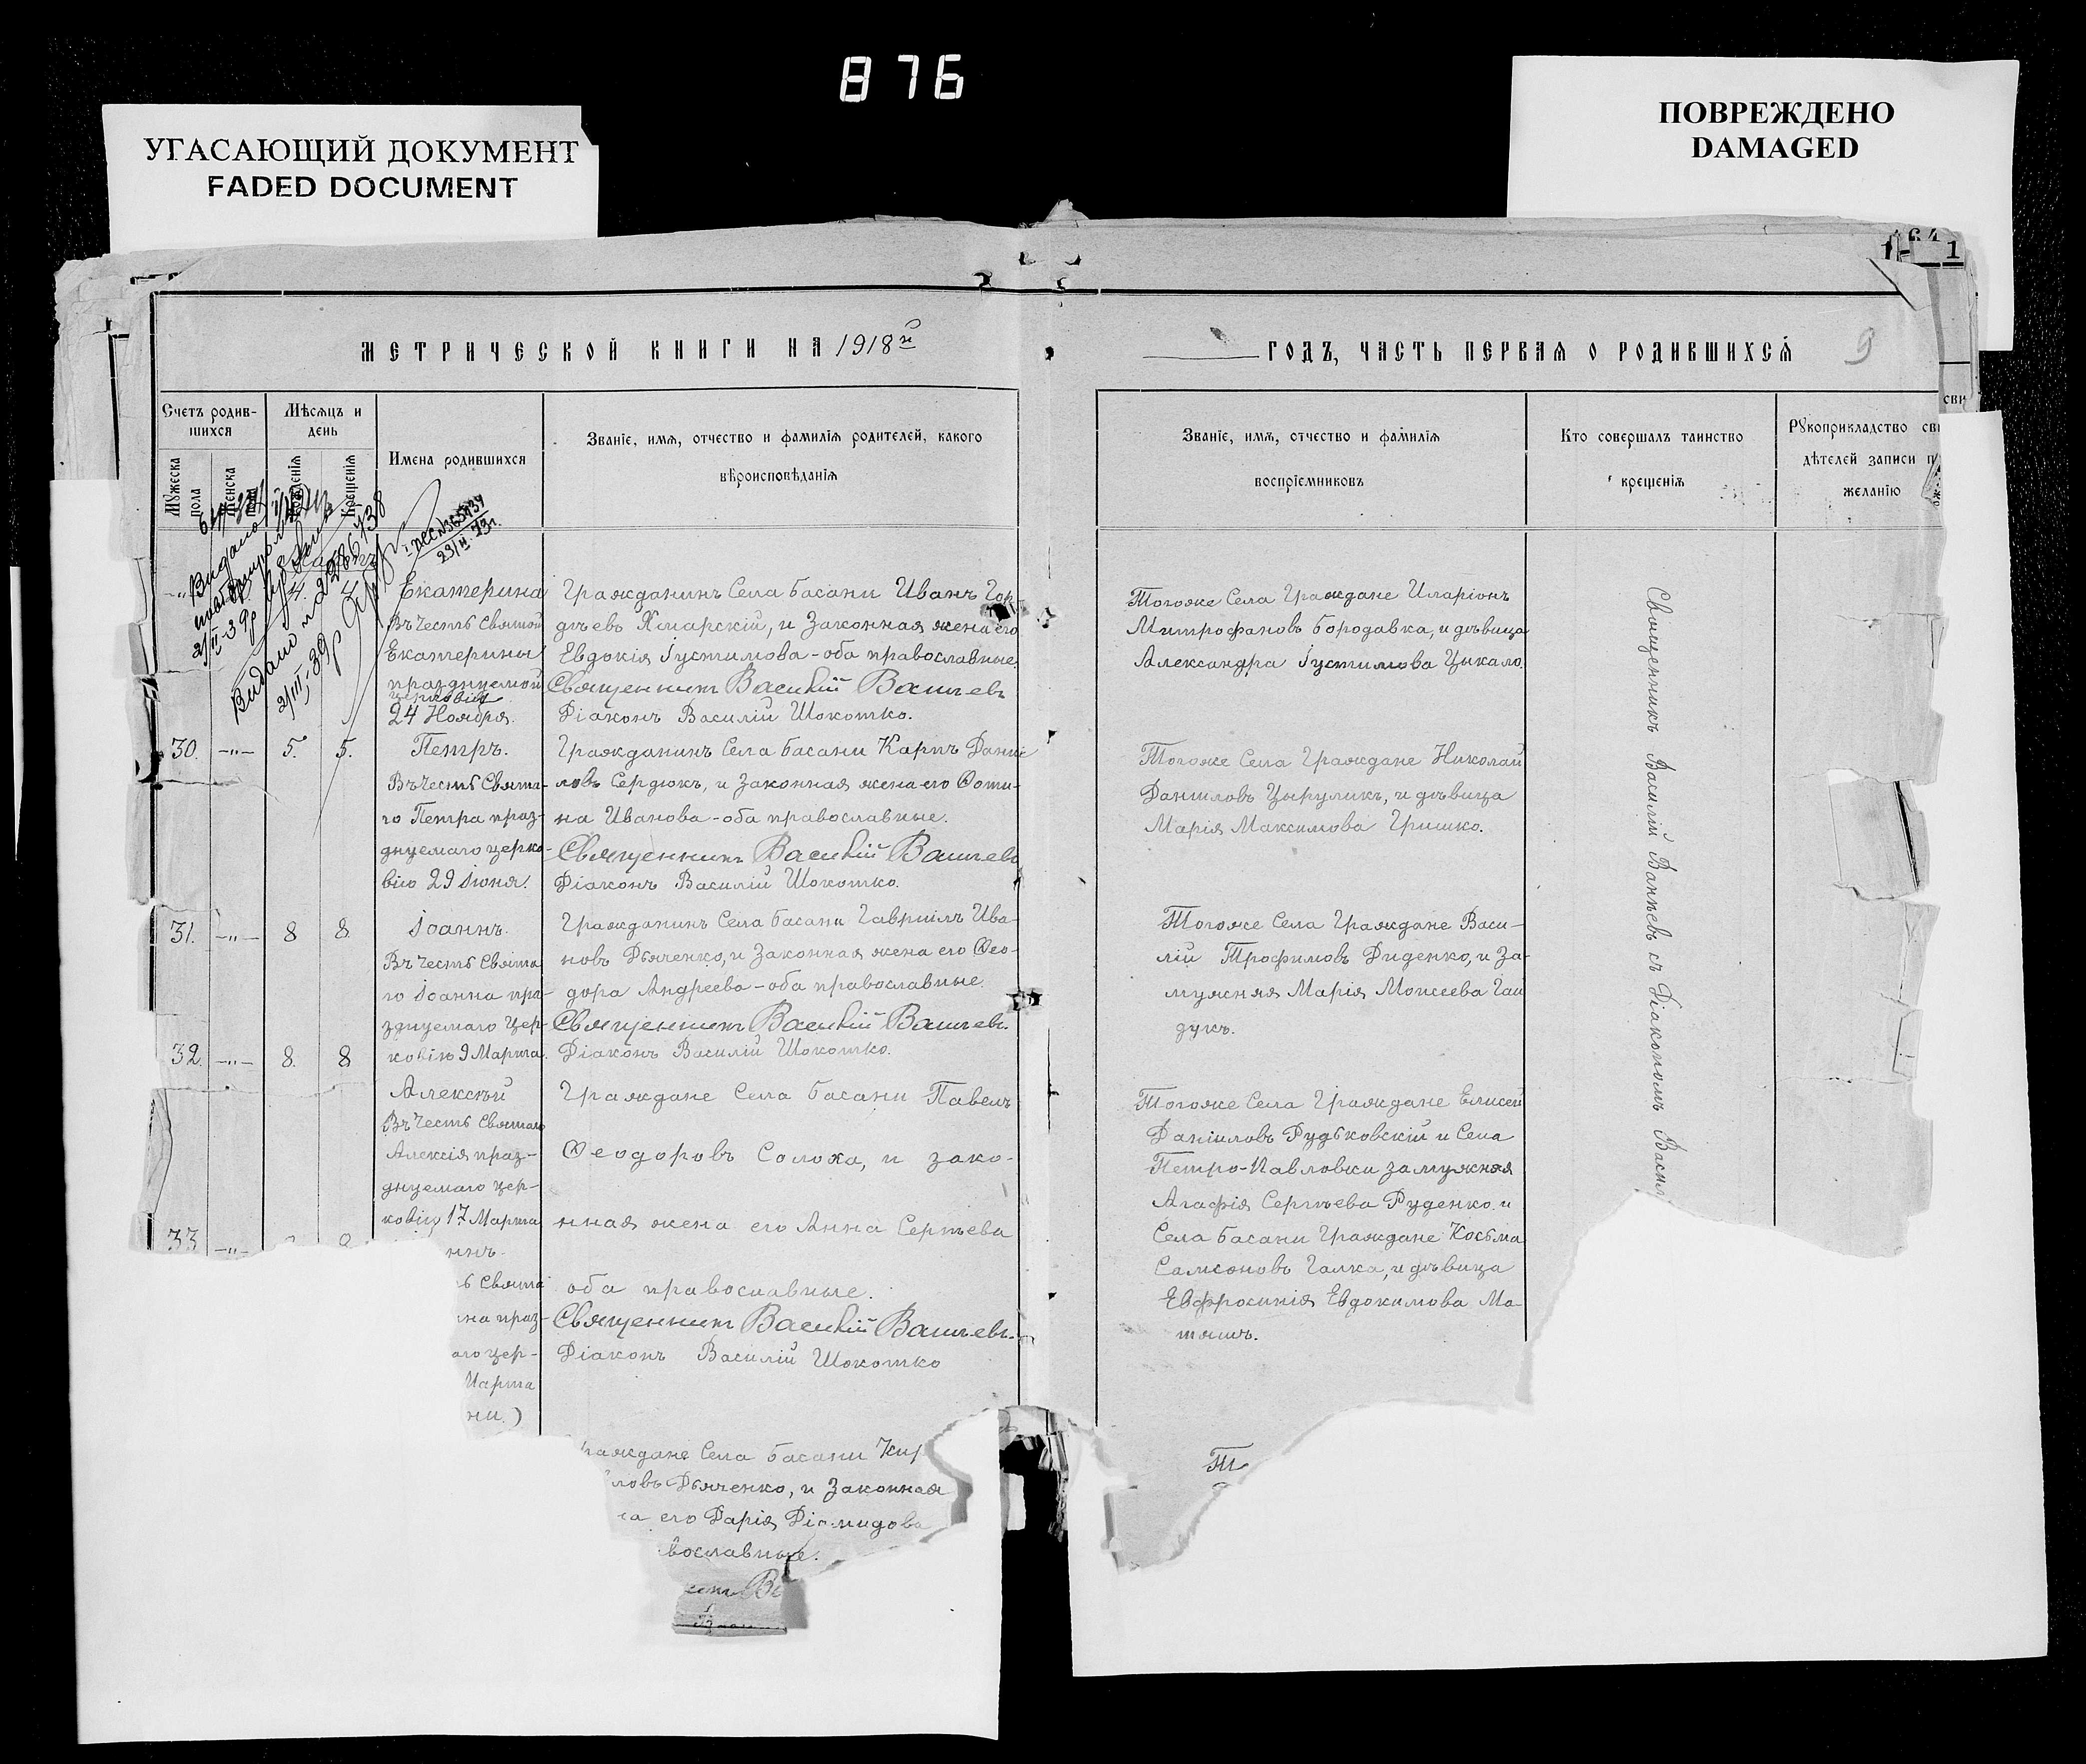 876
УГАСАЮЩИЙ ДОКУМЕНТ
FADED DOCUMENT
ПОВРЕЖДЕНО
DAMAGED
МЕТРИЧЕСКОЙ КНИГИ НА 1918й
ГОДЪ, ЧАСТЬ ПЕРВАЯ О РОДИВШИХСЯ
9
Счетъ родив-
шихся
Мужеска
пола
Мѣсяцъ и
день
Крещенія
Имена родившихся
Званіе, имя, отчество и фамилія родителей, какого
вѣроисповѣданія
Званіе, имя, отчество и фамилія
воспріемниковъ
Кто совершалъ таинство
крещенія
Рукоприкладство сви
дѣтелей записи п
желанію
Видано
2/III-39р
Екатерина
Въ Честь Святой
Екатерины
празднуемой
церковію
24 Ноября.
Гражданинъ Села Басани Иванъ Гор
дѣевъ Хмарскій, и Законная жена его
Евдокія Іустимова - оба православные.
Священникъ Василій Ваньевъ
Діаконъ Василій Шокотко.
Тогоже Села Граждане Иларіонъ
Митрофановъ Бородавка, и дѣвица
Александра Іустимова Цыкало.
30. -"- 5. 5.
Петръ.
Въ Честь Свята-
го Петра праз-
днуемаго церко-
вію 29 Іюня.
Гражданинъ Села Басани Карпъ Дани
ловъ Сердюкъ, и Законная жена его Фоти-
на Иванова - оба православные.
Священникъ Василій Ваньевъ
Діаконъ Василій Шокотко.
Тогоже Села Граждане Николай
Даниловъ Цыруликъ, и дѣвица
Марія Максимова Гришко.
31. -"- 8 8.
Іоаннъ.
Въ Честь Свята
го Іоанна пра-
зднуемаго Цер-
ковію 9 Марта.
Гражданинъ Села Басани Гавриилъ Ива-
новъ Дяченко, и Законная жена его Фео-
дора Андреева - оба православные.
Священникъ Василій Ваньевъ.
Діаконъ Василій Шокотко.
Тогоже Села Граждане Васи-
лій Трофимовъ Диденко, и За-
мужняя Марія Моисеева Гай
дукъ.
32. -"- 8. 8
Алексѣй
Въ Честь Святаго
Алексія праз-
днуемаго цер-
ковію 17 Марта
Граждане Села Басани Павелъ
Феодоровъ Солоха, и зако-
нная жена его Анна Сергѣева
оба православные.
Священникъ Василій Ваньевъ.
Діаконъ Василій Шокотко
Тогоже Села Граждане Елисей
Даниловъ Рудьковскій и Села
Петро-Павловки замужняя
Агафія Сергѣева Руденко. и
Села Басани Граждане Косьма
Самсоновъ Галка, и дѣвица
Евфросинія Евдокимова Ма-
тяшъ.
33 -"-
ннъ.
ь Свята
на праз-
аго цер-
Марта
ни.)
раждане Села Басани Кир
ловъ Дьяченко, и Законная
на его Дарія Діомидова
вославные.
Священникъ Василій Ваньевъ съ Діакономъ Васил